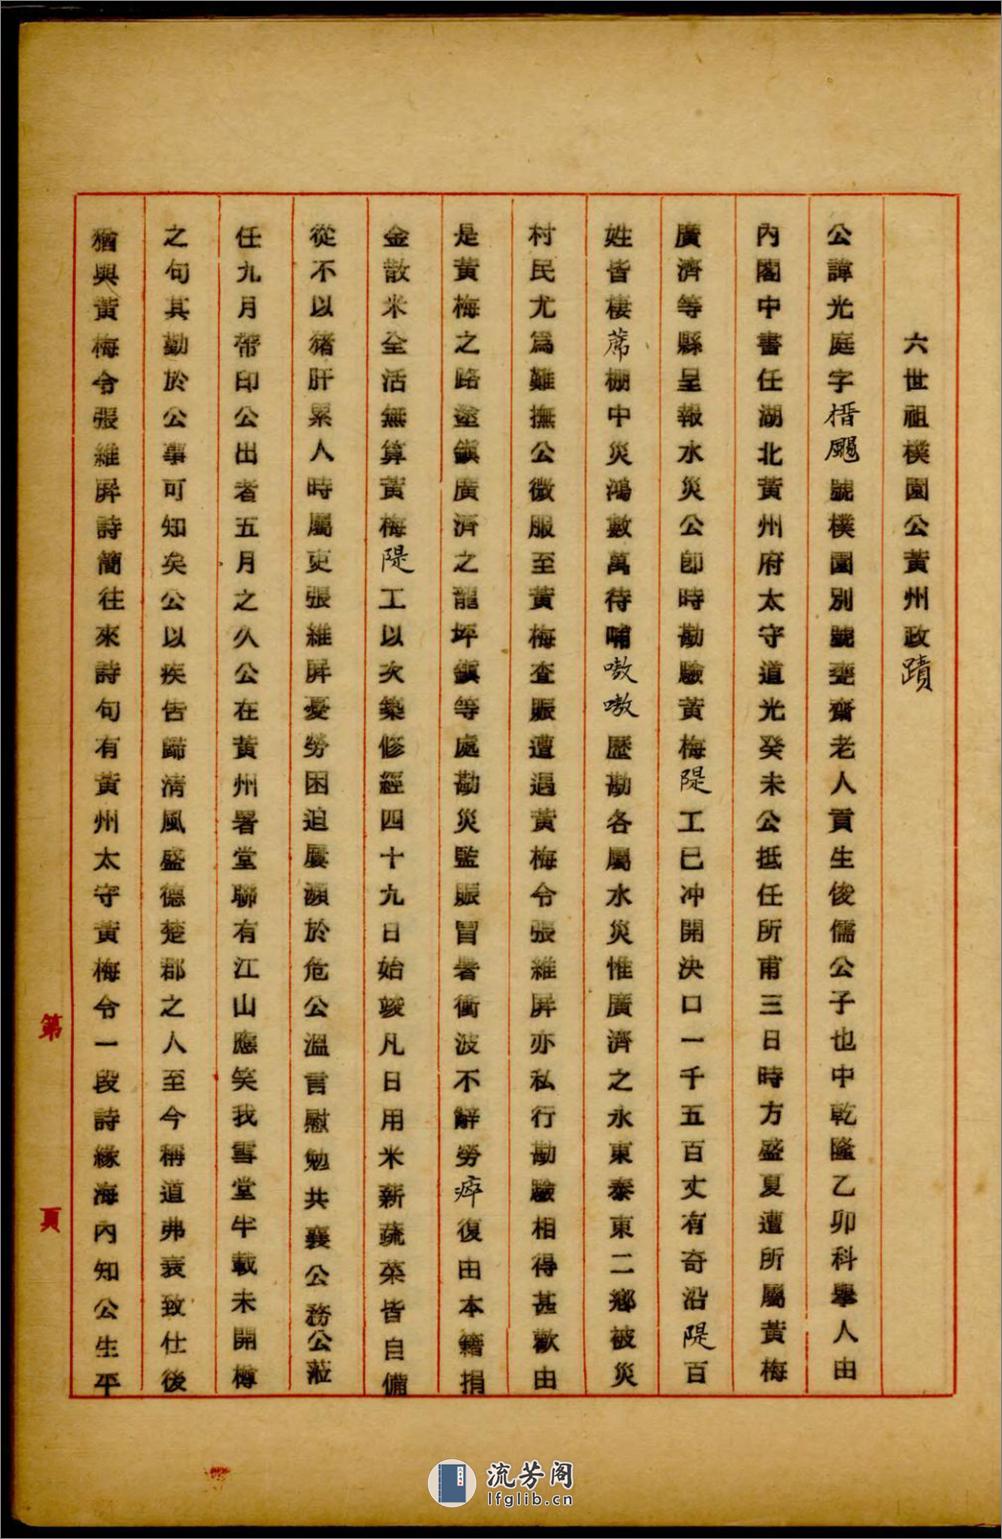 六世祖樸園公黃州政蹟
公諱光庭字榗颺號樸園別號甕齋老人貢生俊儒公子也中乾隆乙卯科舉人由
內閣中書任湖北黃州府太守道光癸未公抵任所甫三日時方盛夏遭所屬黃梅
廣濟等縣呈報水災公卽時勘驗黃梅隄工已冲開決口一千五百丈有奇沿隄百
姓皆棲蓆棚中災鴻數萬待哺嗷嗷歷勘各屬水災惟廣濟之永東泰東二鄉被災
村民尤爲難撫公微服至黃梅查賑遭遇黃梅令張維屏亦私行勘驗相得甚歡由
是黃梅之路塗鎭廣濟之龍坪鎭等處勘災監賑冒暑衝波不辭勞瘁復由本籍捐
金散米全活無算黃梅隄工以次築修經四十九日始竣凡日用米薪蔬菜皆自備
從不以豬肝累人時屬吏張維屏憂勞困迫屢瀕於危公溫言慰勉共襄公務公蒞
任九月帶印公出者五月之久公在黃州署堂聯有江山應笑我雪堂半載未開樽
之句其勤於公事可知矣公以疾告歸清風盛德楚郡之人至今稱道弗衰致仕後
猶與黃梅令張維屏詩簡往來詩句有黃州太守黃梅令一段詩緣海內知公生平
第
頁
流芳阁
lfglib.cn